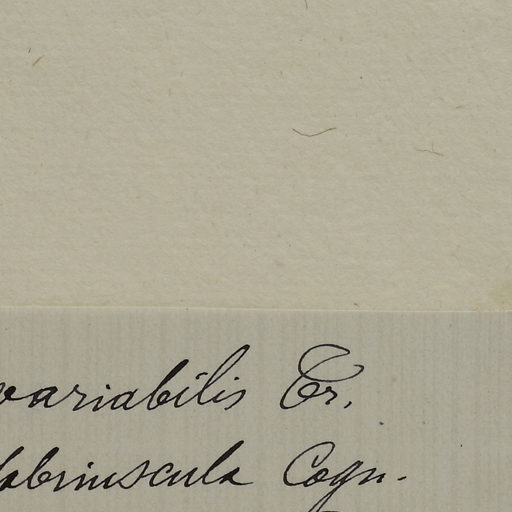 variabilis Cr.
labriuscula Cogn.